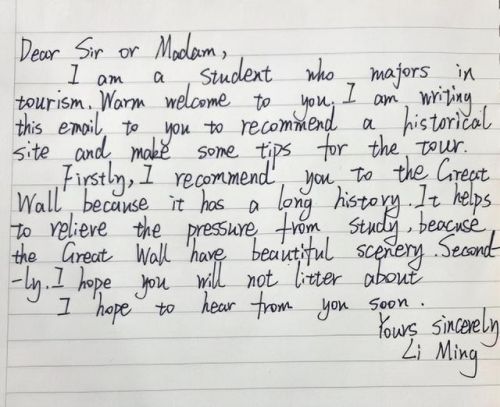 Dear Sir or Madam,
I am a student who majors in
tourism. Warm welcome to you. I am writing
this email to you to recommend a historical
site and make some tips for the tour.
Firstly, I recommend you to the Great
Wall because it has a long history. It helps
to relieve the pressure from study, beacuse
the Great Wall have beautiful scenery. Second-
-ly. I hope you will not litter about
I hope to hear from you soon.
Yours sincerely
Li Ming